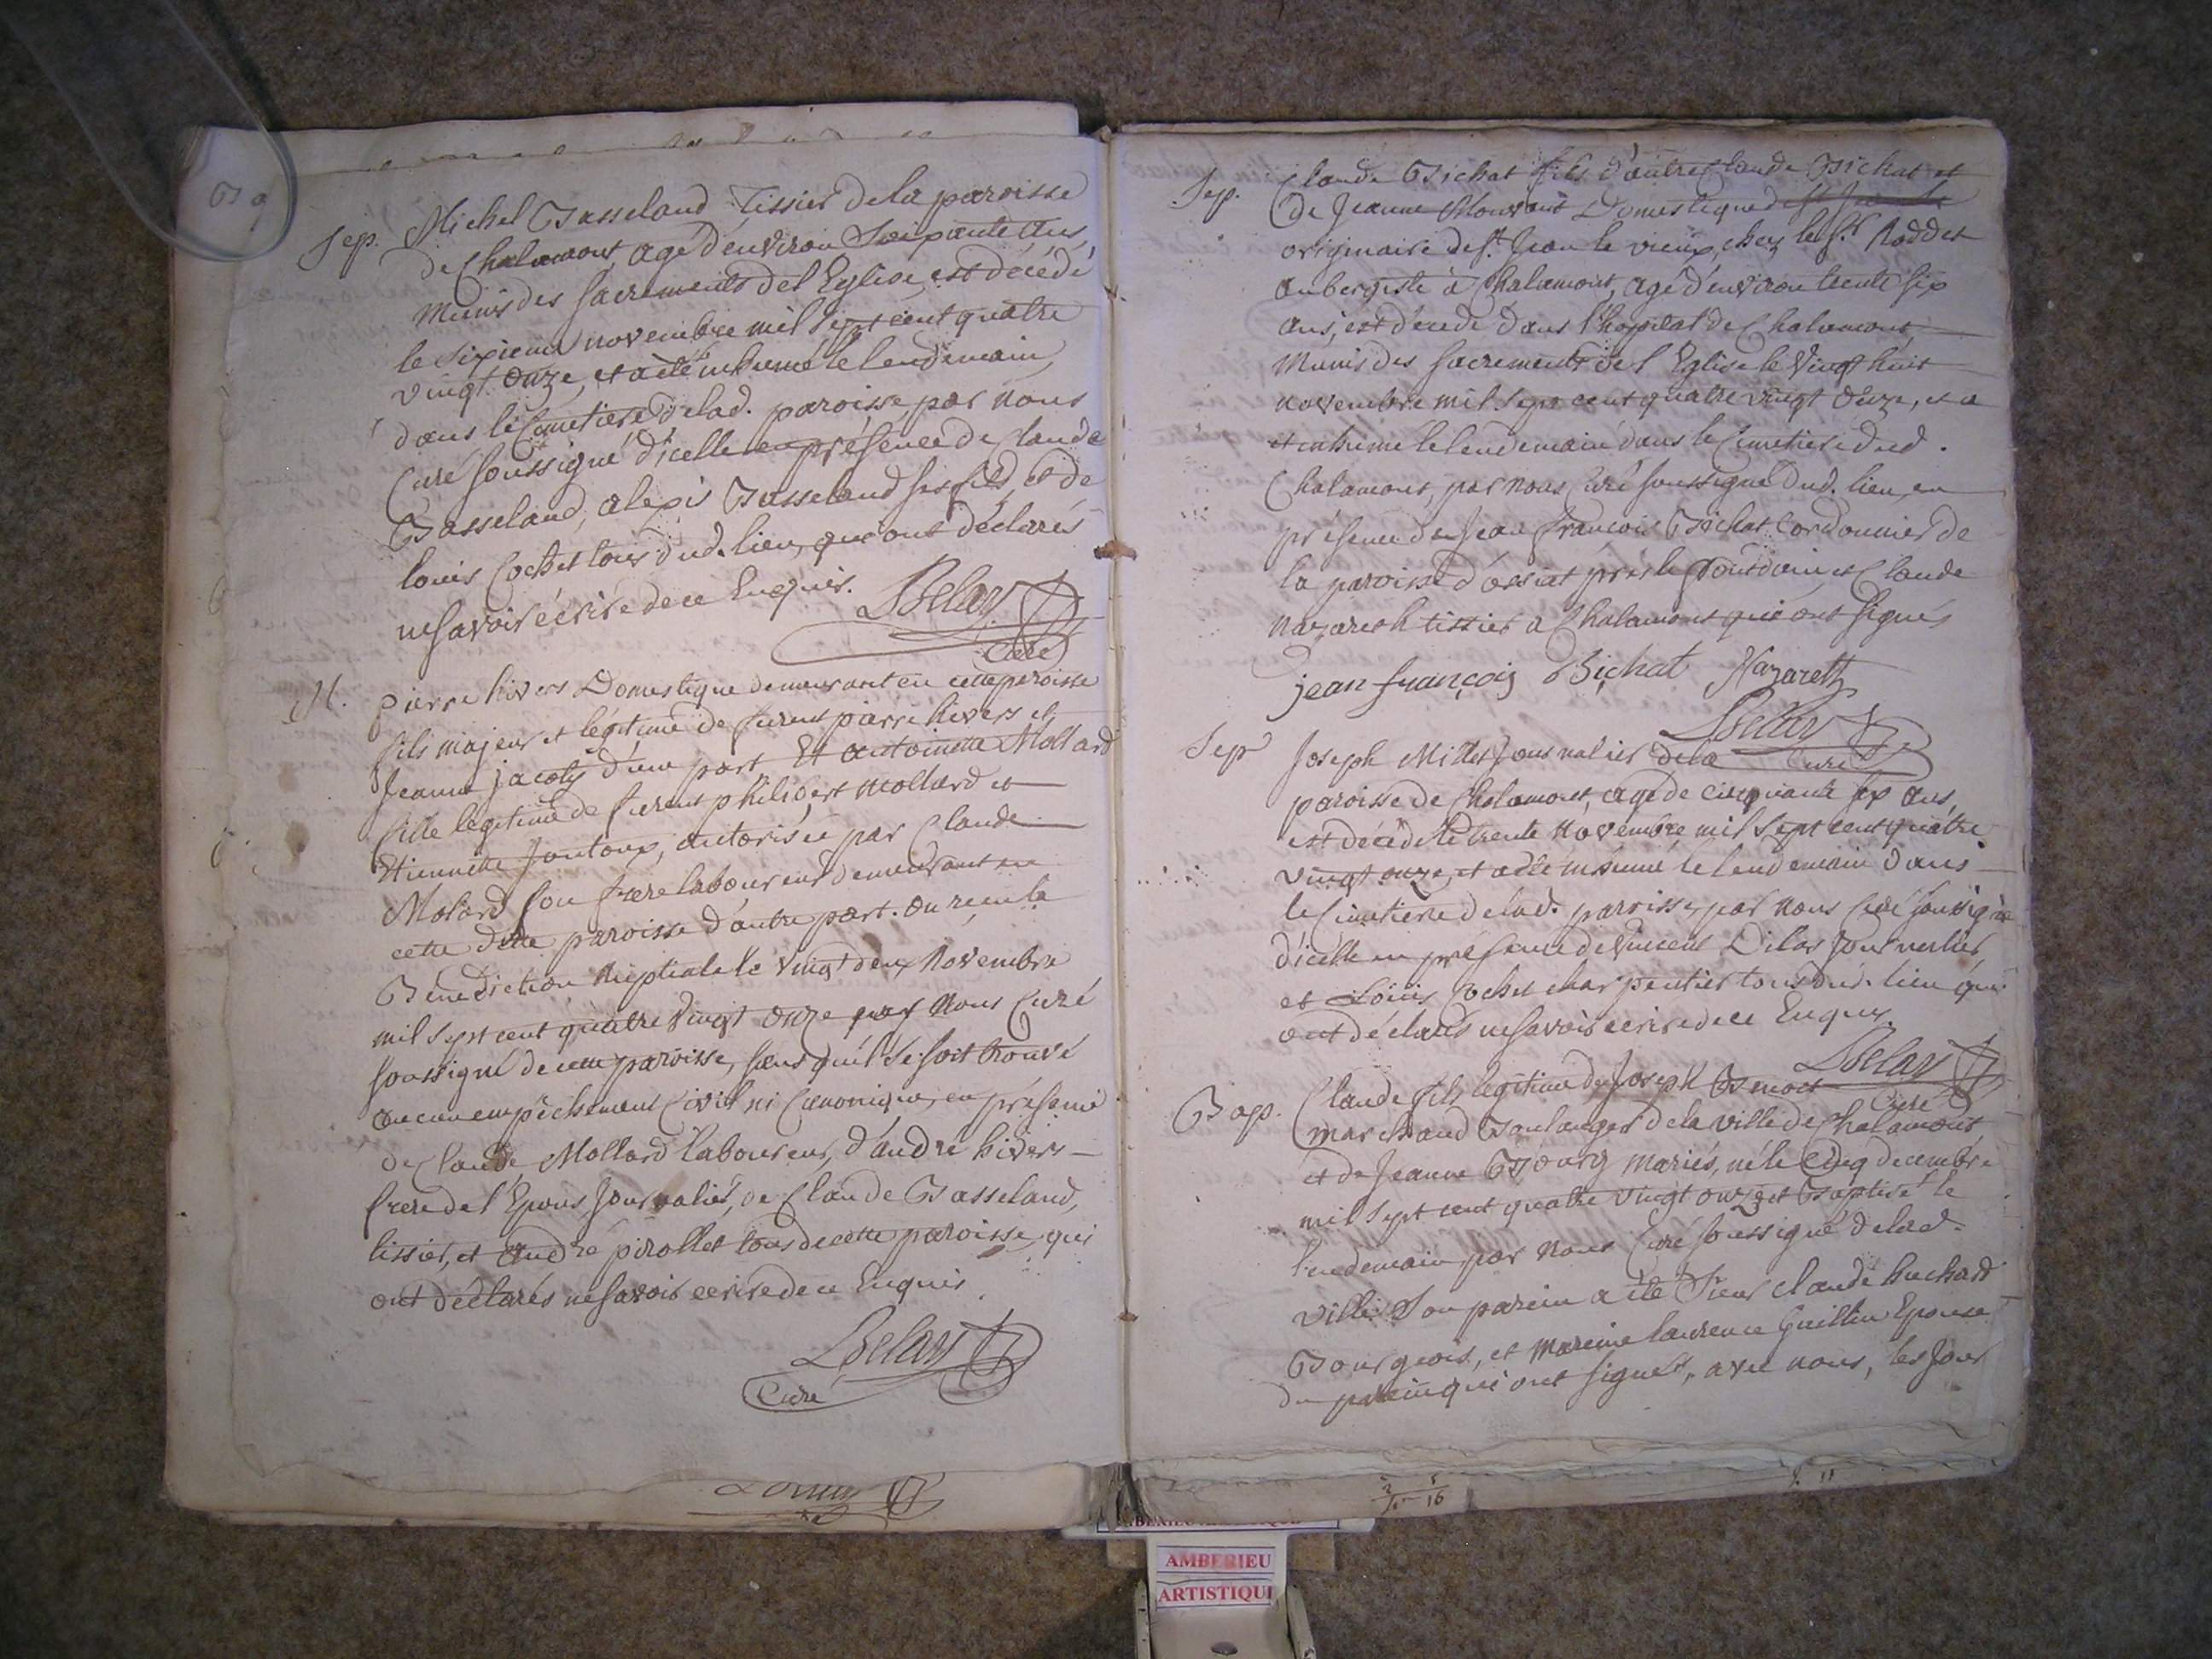 Ba
Sep. Michel Basseland Tissier dela paroisse
de Chalamont agé d'environ Soixante Ans,
Munis des sacrements de l'Eglise, est décédé
le sixieme novembre mil sept cent quatre
vingt onze, et a été inhumé le lendemain
dans le Cimetiere delad. paroisse par nous
Curé soussigné d'icelle en présence de Claude
Basseland, alexis Basseland ses fils, et de
louis Cochet tous dud. lieu, qui ont déclarés
ne savoir écrire de ce Enquis.
Curé
M. pierre hivers Domestique demeurant en cette paroisse
fils majeur et légitime de furent pierre hivers et
Jeanne jacoty d'une part Et antoinette Mollard
fille légitime de furent philibert Mollard et
Etiennette Joutoux, autorisée par Claude
Molard son frere laboureur demeurant en
cette ditte paroisse d'autre part. On reçu la
Bénédiction Nuptiale le vingt deux Novembre
mil sept cent quatre vingt onze par nous Curé
soussigné de cette paroisse, sans qu'il se soit trouvé
aucun empêchement Civil ni Canonique, en présence
de Claude Mollard laboureur, d'andré hivers
frere de l'Epoux Journalier, de Claude Basseland,
tissier, et andré pirollet tous de cette paroisse, qui
ont déclarés ne savoir écrire de ce Enquis.
Curé
Sep. Claude Bichat fils d'autre Claude Bichat et
de Jeanne Mouvant Domestique de
originaire de St. Jean le vieux, chez le Sr. Roddet
aubergiste à Chalamont, agé d'environ trente six
ans, est décédé dans l'hopital de Chalamont,
Munis des sacrements de l'Eglise le vingt huit
novembre mil sept cent quatre vingt onze, et a
et inhumé le lendemain dans le Cimetiere dud.
Chalamont, par nous Curé soussigné dud. lieu, en
présence de Jean françois Bichat Cordonnier de
la paroisse d'ossiat près le pontdain et Claude
Nazareth tissier a Chalamont qui ont signés
jean françois Bichat Nazareth
Sep Joseph Millet Journalier dela Curé
paroisse de Chalamont, agé de cinquante six ans,
est décédé le trente Novembre mil sept cent quatre
vingt onze, et a été inhumé le lendemain dans
le Cimetiere delad. paroisse, par nous Curé soussigné
d'icelle en présence de Vincent Dilas Journalier
et Loüis Cochet charpentier tous dud. lieu qui
ont déclarés ne savoir écrire de ce Enquis.
Bap. Claude fils légitime de Joseph Benoit Curé
marchand Boulanger de la ville de Chalamont
et de Jeanne Bourg mariés, né le Cinq decembre
mil sept cent quatre vingt onze et Baptisé le
lendemain par Nous Curé soussigné delad.
ville. Son parein a été Sieur Claude huchard
Bourgeois, et mareine laurence Guillin Epouse
du parein qui ont signés, avec nous, les Jour
AMBERIEU
ARTISTIQU